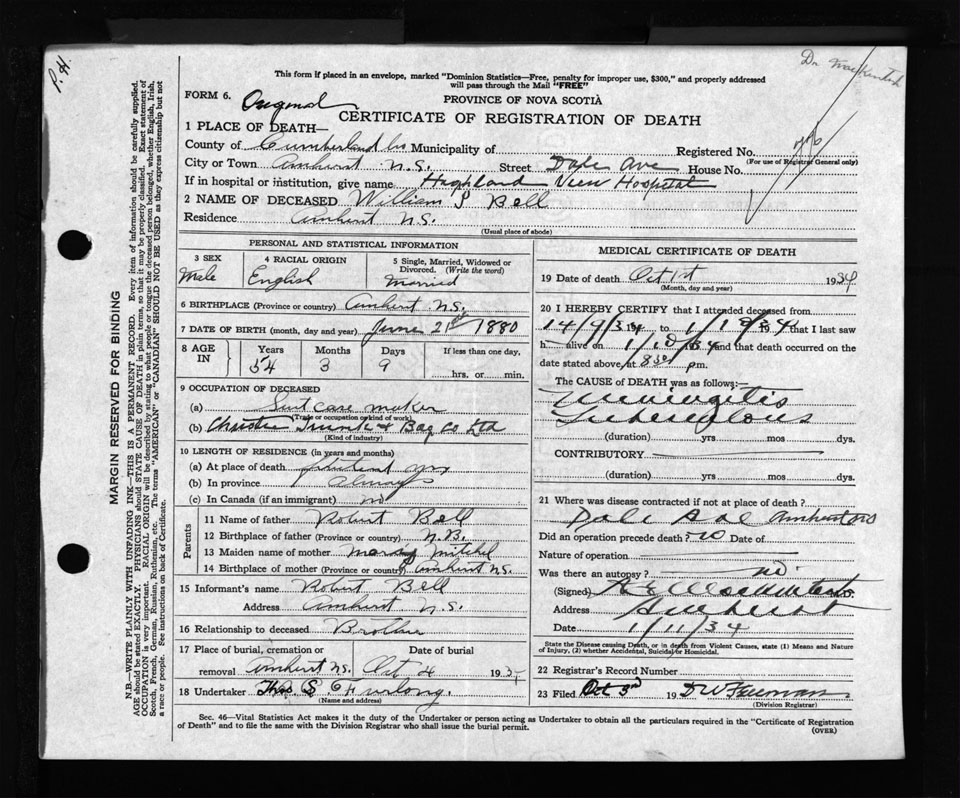 P. H.
Dr.
This form if placed in an envelope, marked "Dominion Statistics—Free, penalty for improper use, $300," and properly addressed
will pass through the Mail "FREE"
FORM 6. Original
PROVINCE OF NOVA SCOTIA
CERTIFICATE OF REGISTRATION OF DEATH
1 PLACE OF DEATH—
County of Cumberland Co Municipality of Registered No.
(For use of Registrar General only)
City or Town Amherst N.S. Street Ave House No.
If in hospital or institution, give name Highland View Hospital
2 NAME OF DECEASED William Bell
Residence Amherst N.S.
(Usual place of abode)
PERSONAL AND STATISTICAL INFORMATION
3 SEX Male
4 RACIAL ORIGIN English
5 Single, Married, Widowed or Divorced. (Write the word) Married
6 BIRTHPLACE (Province or country) Amherst N.S.
7 DATE OF BIRTH (month, day and year) June 21st 1880
8 AGE IN Years 54 Months 3 Days 9 If less than one day, hrs. or min.
9 OCCUPATION OF DECEASED
(a) Suit case maker
(Trade or occupation or kind of work)
(b) Christie Trunk & Bag Co Ltd
(Kind of industry)
10 LENGTH OF RESIDENCE (in years and months)
(a) At place of death
(b) In province always
(c) In Canada (if an immigrant) no
Parents
11 Name of father Robert Bell
12 Birthplace of father (Province or country) N.B.
13 Maiden name of mother Mitchel
14 Birthplace of mother (Province or country) Amherst N.S.
15 Informant's name Robert Bell
Address Amherst N.S.
16 Relationship to deceased Brother
17 Place of burial, cremation or removal Amherst N.S. Date of burial Oct 4 193
18 Undertaker Thos S. Furlong.
(Name and address)
MEDICAL CERTIFICATE OF DEATH
19 Date of death Oct 1st 1934
(Month, day and year)
20 I HEREBY CERTIFY that I attended deceased from
14/9/34 to that I last saw
h alive on 1/10/34 and that death occurred on the
date stated above, at 830 pm.
The CAUSE OF DEATH was as follows:—
Meningitis
Tuberculous
(duration) yrs mos dys.
CONTRIBUTORY
(duration) yrs mos dys.
21 Where was disease contracted if not at place of death?
Amherst NS
Did an operation precede death? no Date of
Nature of operation
Was there an autopsy? no
(Signed)
Address Amherst
Date 1/11/34
State the Disease causing Death, or in death from Violent Causes, state (1) Means and Nature
of Injury, (2) whether Accidental, Suicidal or Homicidal.
22 Registrar's Record Number
23 Filed Oct 3rd 19 D W Freeman
(Division Registrar)
Sec. 46—Vital Statistics Act makes it the duty of the Undertaker or person acting as Undertaker to obtain all the particulars required in the "Certificate of Registration
of Death" and to file the same with the Division Registrar who shall issue the burial permit.
(OVER)
MARGIN RESERVED FOR BINDING
N.B.—WRITE PLAINLY WITH UNFADING INK—THIS IS A PERMANENT RECORD. Every item of information should be carefully supplied.
AGE should be stated EXACTLY. PHYSICIANS should STATE CAUSE OF DEATH in plain terms, so that it may be properly classified. Exact statement of
OCCUPATION is very important. RACIAL ORIGIN will be described by stating to what people or tongue the deceased person belonged, whether English, Irish,
Scotch, French, German, Russian, Ruthenian, etc. The terms "AMERICAN" or "CANADIAN" SHOULD NOT BE USED as they express citizenship but not
a race or people. See instructions on back of Certificate.